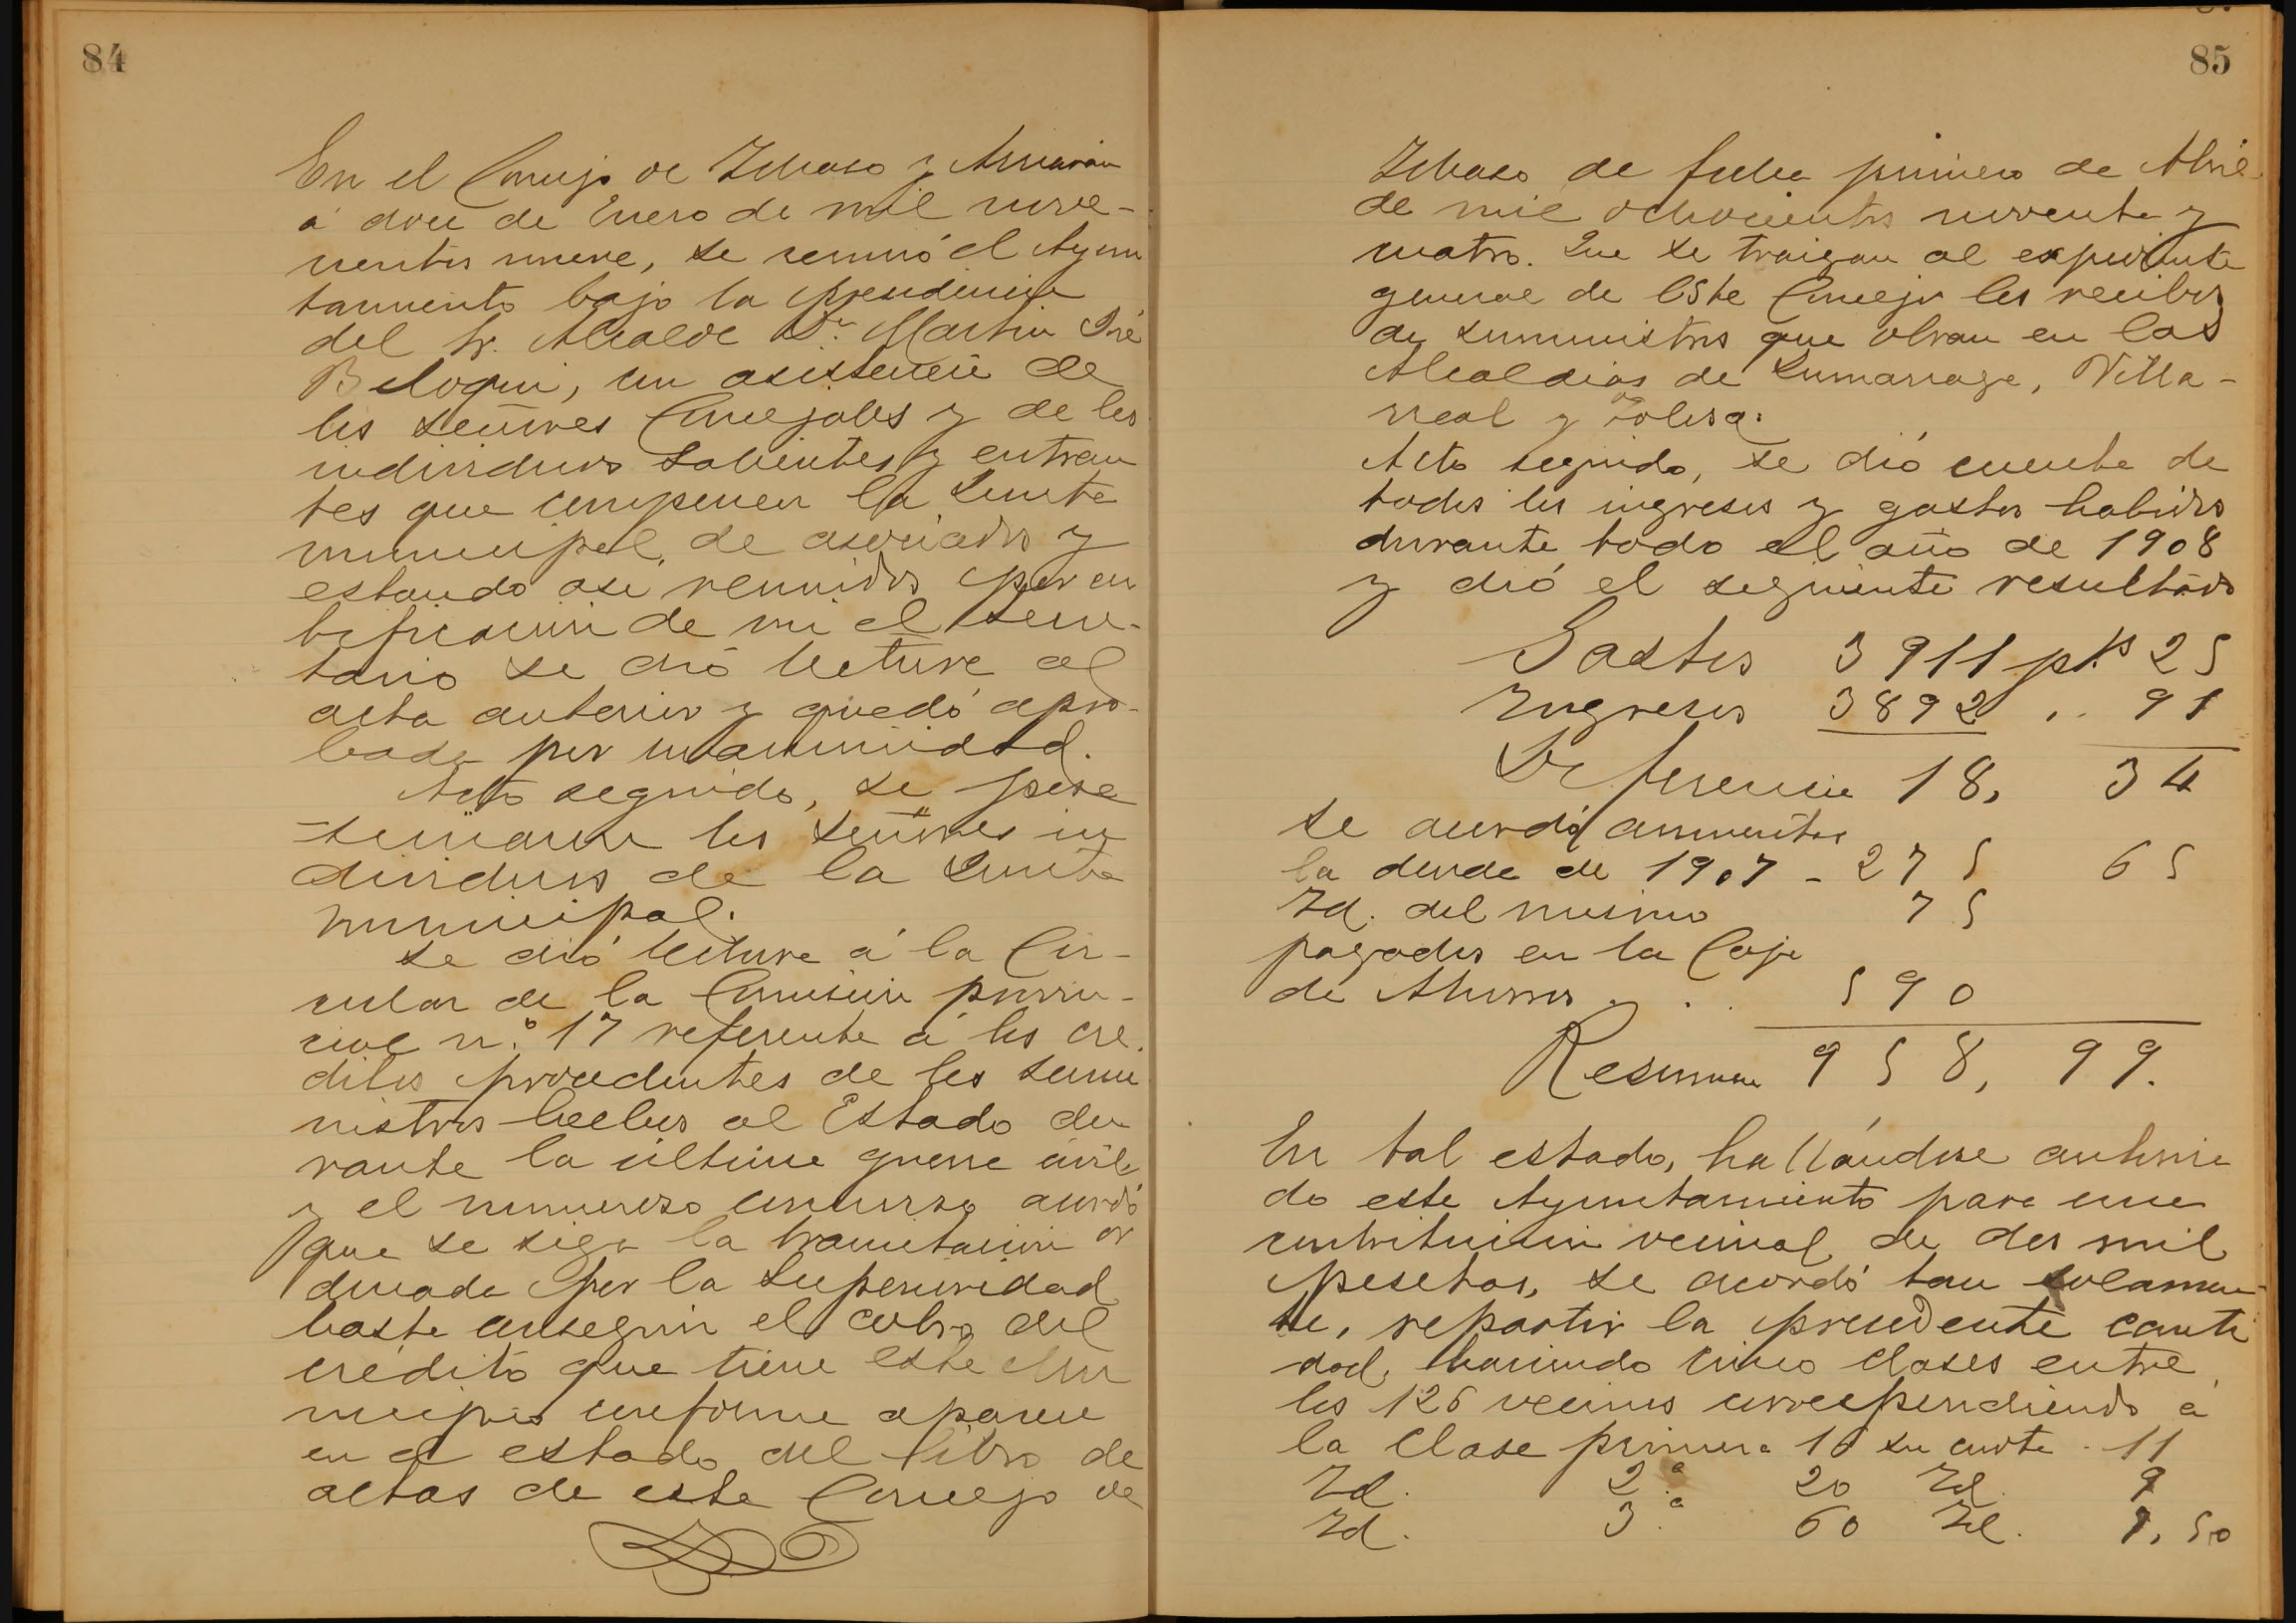 84
En el Concejo de Ichaso y Arriarán
á doce de Enero de mil nove-
cientos nueve, se reunió el Ayun
tamiento bajo la presidencia
del Sr. Alcalde Dn. Martin José
Beloqui, con asistencia de
los señores Concejales y de los
individuos salientes y entran
tes que componen la Junta
municipal de asociados y
estando asi reunidos por cer
tificacion de mi el Secre-
tario se dió lectura al
acta anterior y quedó apro-
bada por unanimidad.
Acto seguido, se pose
=sionaron los señores in
dividuos de la Junta
municipal.
Se dió lectura á la Cir-
cular de la Comision provin-
cial n.º 17 referente á los cre
ditos procedentes de los sumi
nistros hechos al Estado du
rante la última guerra civil
y el numeroso concurso acordó
que se siga la tramitacion or
denada por la Superioridad
hasta conseguir el cobro del
crédito que tiene este Mu
nicipio conforme aparece
en el estado del libro de
actas de este Concejo de
85
Ichaso de fecha primero de Abril
de mil ochocientos noventa y
cuatro. Que se traigan al expediente
general de este Concejo los recibos
de suministros que obran en las
Alcaldias de Zumarraga, Villa-
rreal y Tolosa.
Acto seguido, se dió cuenta de
todos los ingresos y gastos habidos
durante todo el año de 1908
y dió el seguiente resultado
Gastos 3911 pts 25
Ingresos 3892 ,, 91
Diferencia 18, 34
Se acordó aumentar
la deuda de 1907 - 275 65
Id. del mismo 75
pagados en la Caja
de Ahorros y . 590
Resumen 958, 99.
En tal estado, hallándose autoriza
do este Ayuntamiento para una
contribucion vecinal de dos mil
pesetas, se acordó tan solamen-
te, repartir la precedente canti
dad, haciendo cinco clases entre
los 126 vecinos correspondiendo á
la clase primera 16 su cuota . 11
Id. 2.ª 20 Id. 9
Id. 3.ª 60 Id. 7,50